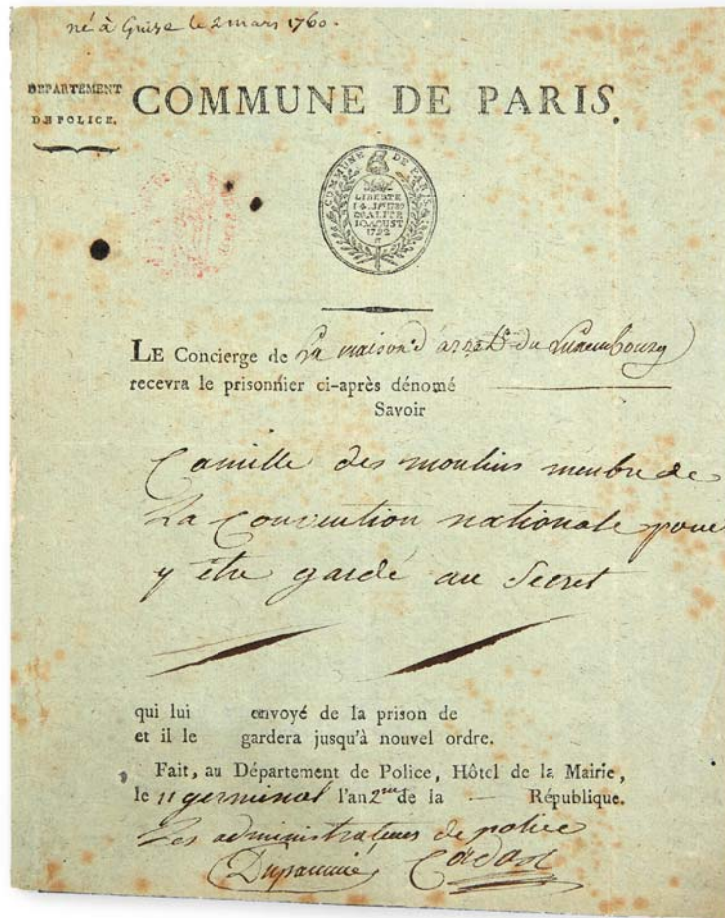 né à Guise le 2 mars 1760.
DEPARTEMENT
DE POLICE.
COMMUNE DE PARIS.
COMMUNE DE PARIS.
LIBERTE
14 JUIL 1789
EGALITE
10 AOUST
1792
LE Concierge de La maison d'arrêt du Luxembourg
recevra le prisonnier ci-après dénomé
Savoir
Camille des moulins membre de
La Convention nationale pour
y être gardé au Secret
qui lui envoyé de la prison de
et il le gardera jusqu'à nouvel ordre.
Fait, au Département de Police, Hôtel de la Mairie,
le 11 germinal l'an 2me de la République.
Les administrateurs de police
Dupaumié